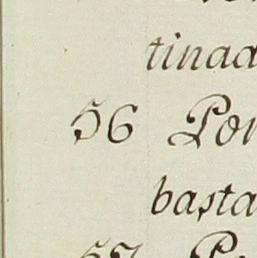 tinad
56 Por
basta
57